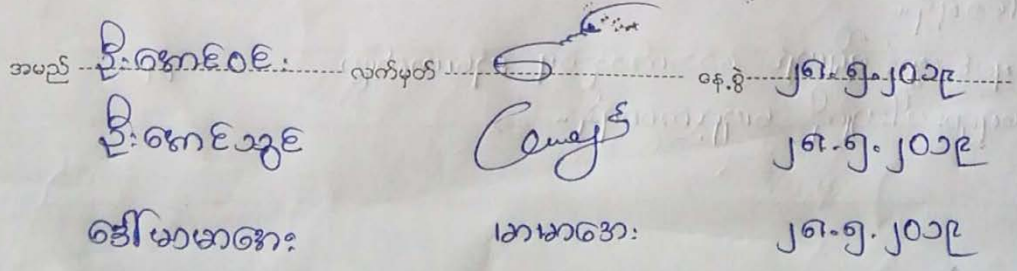 အမည် ဦးအောင်ဝင်း လက်မှတ် နေ့စွဲ ၂၈.၅.၂၀၁၉
ဦးအောင်သွင် ၂၈.၅.၂၀၁၉
ဒေါ်မာမာအေး မာမာအေး ၂၈.၅.၂၀၁၉